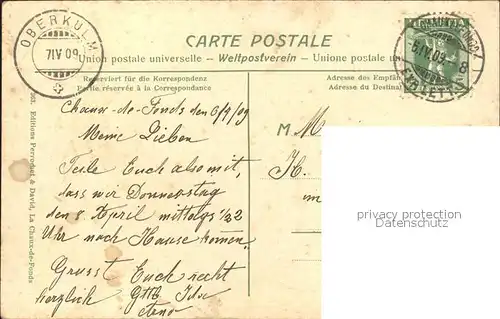 OBERKULM
7 IV 09
CARTE POSTALE
Union postale universelle – Weltpostverein – Unione postale
CHAUX-DE-FONDS
6.IV.09
8
LETTRES
Reserviert für die Korrespondenz
Partie réservée à la Correspondance
Adresse des Empfän
Adresse du Destinat
Chaux-de-Fonds den 6/4/09
Meine Lieben
Teile Euch also mit,
dass wir Donnerstag
den 8. April mittags ½2
Uhr nach Hause kommen.
Gruss Euch recht
herzlich
M M
H.
privacy protection
Datenschutz
Editions Perrochet & David, La Chaux-de-Fonds